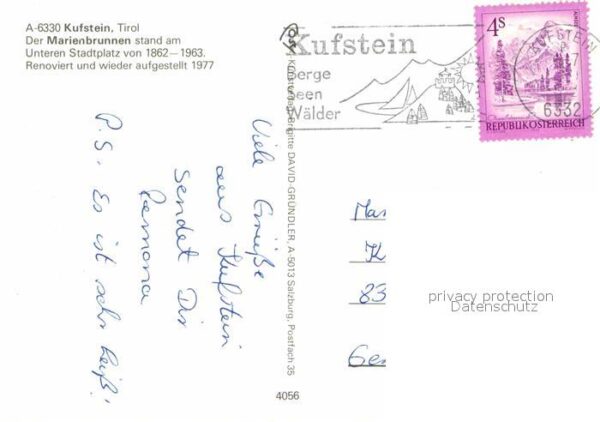 A-6330 Kufstein, Tirol
Der Marienbrunnen stand am
Unteren Stadtplatz von 1862—1963.
Renoviert und wieder aufgestellt 1977
Kufstein
Berge
Seen
Wälder
KUFSTEIN
6332
4S
REPUBLIK ÖSTERREICH
Brigitte DAVID-GRÜNDLER, A-5013 Salzburg, Postfach 35
4056
Viele Grüße
aus Kufstein
sendet Dir
Ramona
P.S. Es ist sehr heiß!
Mar
K
83
Ger
privacy protection
Datenschutz